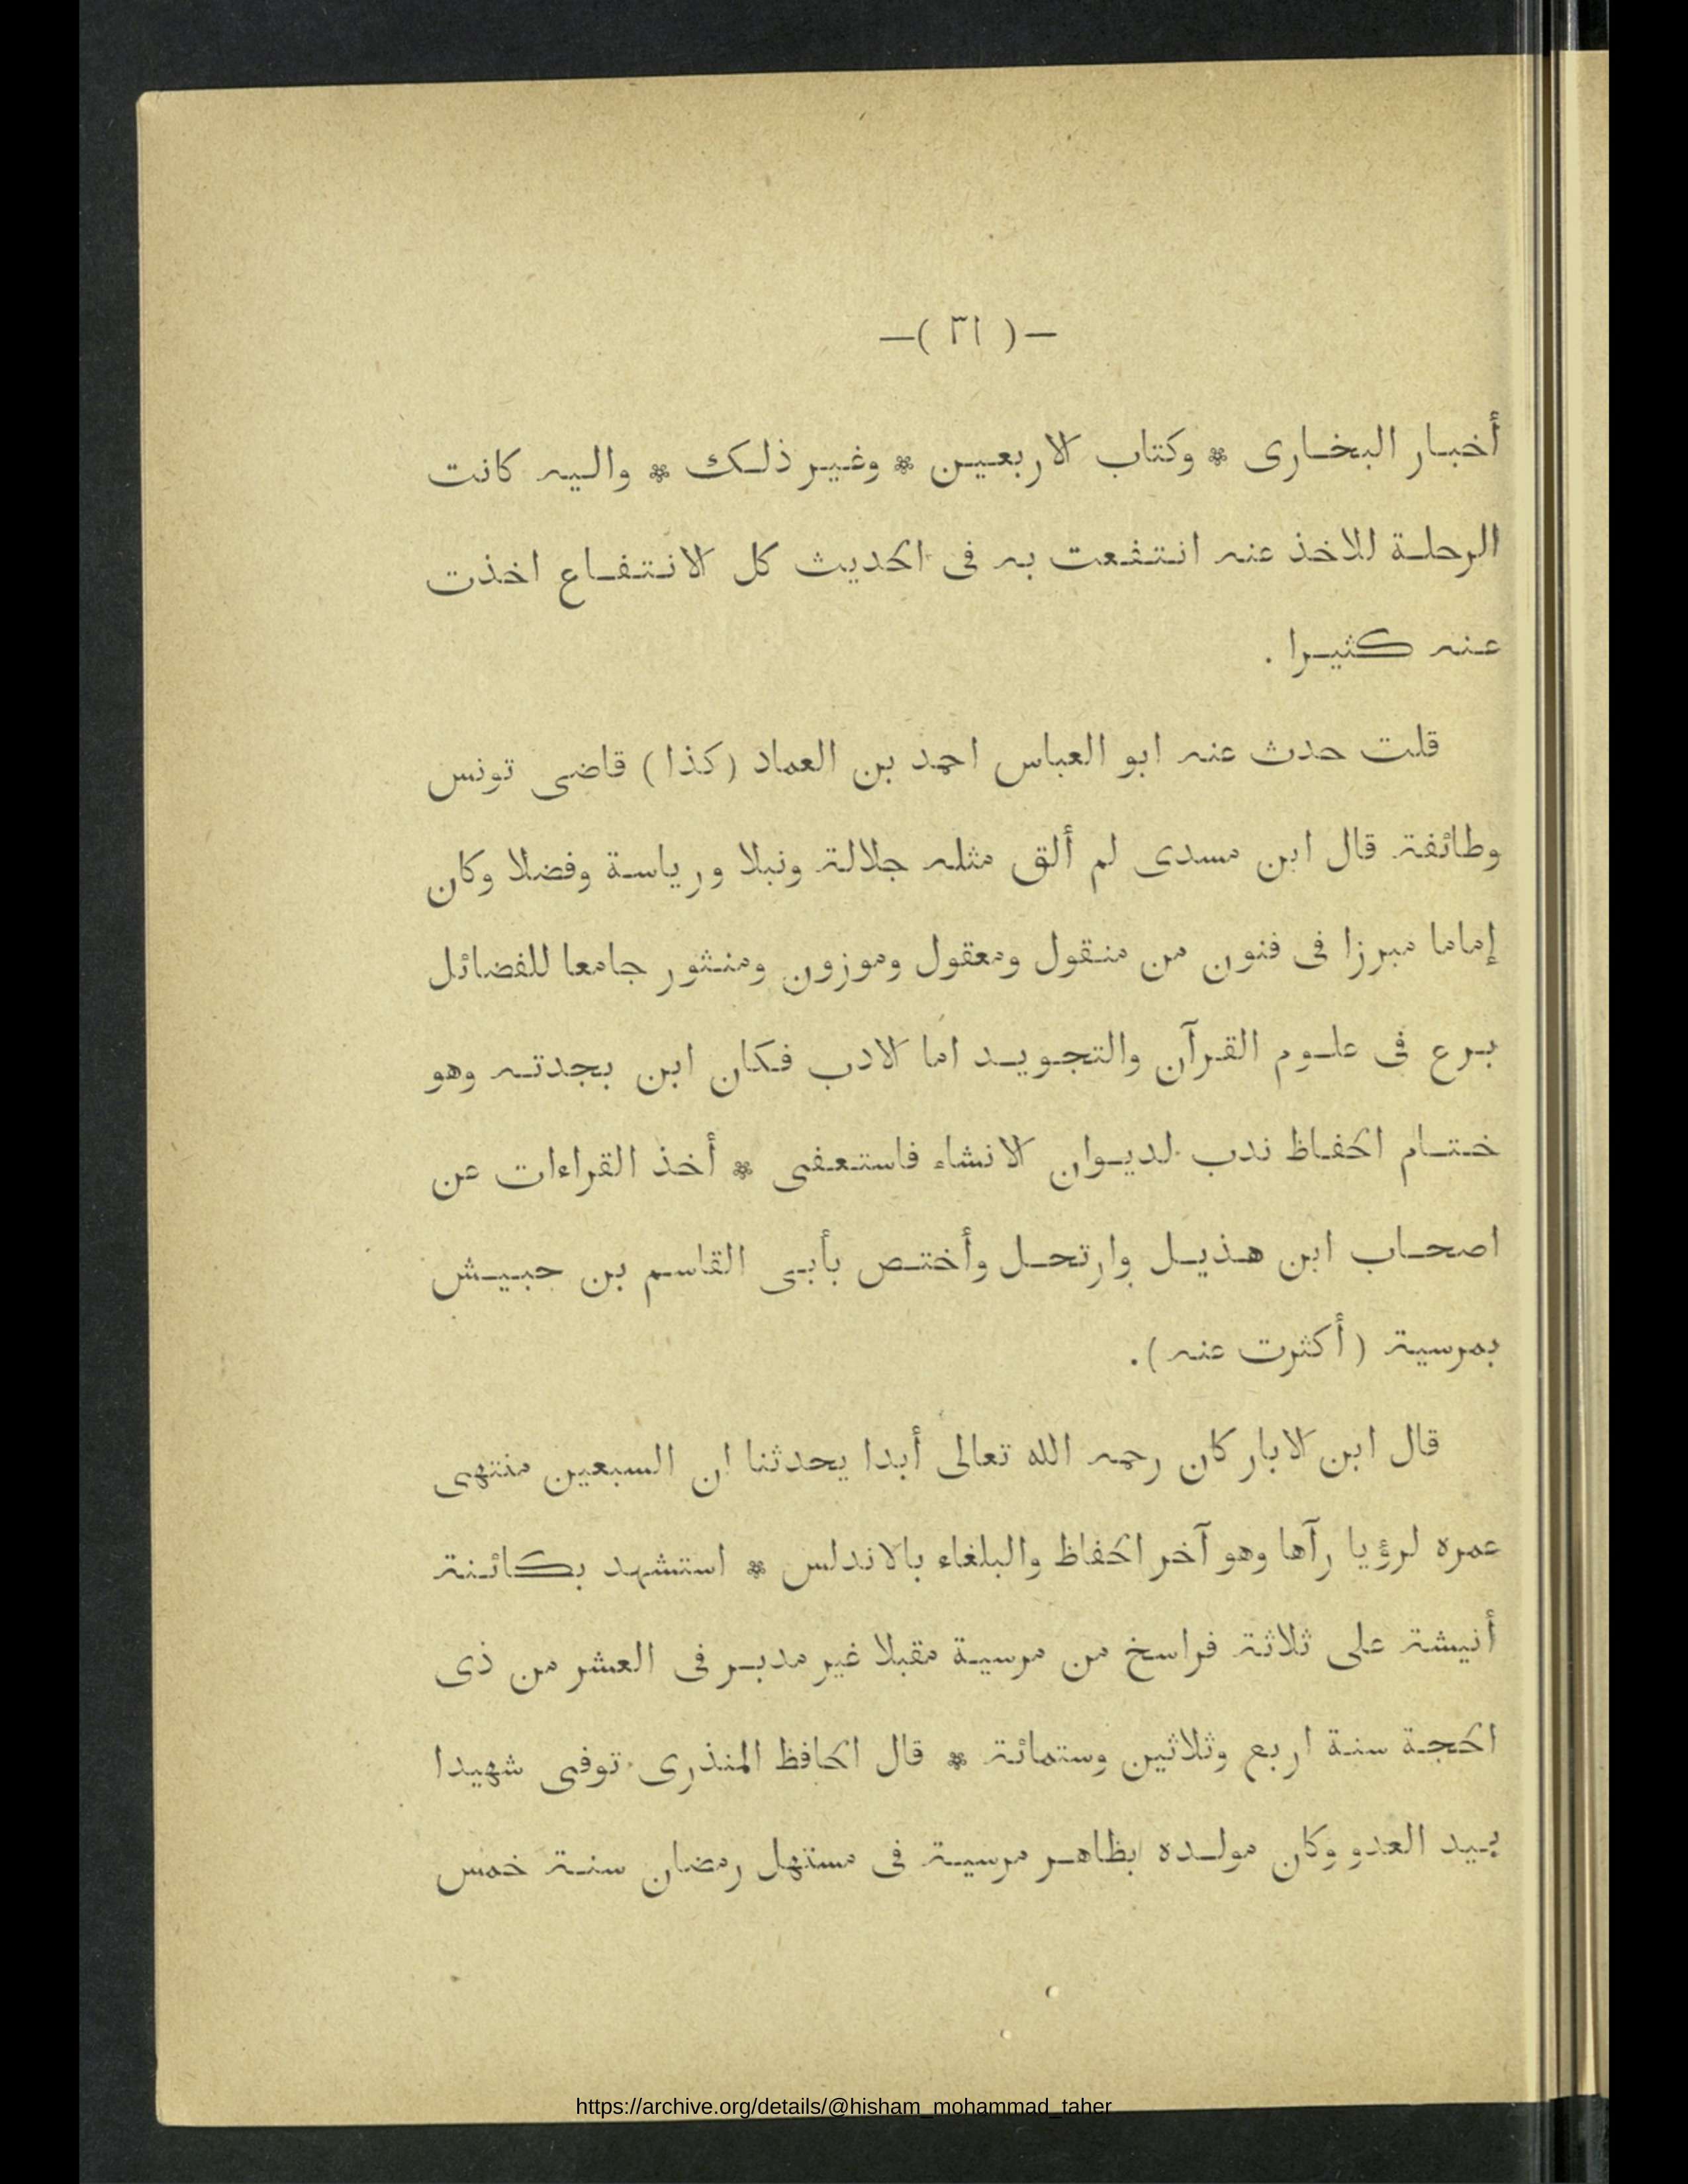 —( ٣١ )—
أخبار البخارى * وكتاب الاربعين * وغير ذلك * واليه كانت
الرحلة للاخذ عنه انتفعت به فى الحديث كل الانتفاع اخذت
عنه كثيرا .
قلت حدث عنه ابو العباس احمد بن العماد (كذا) قاضى تونس
وطائفة قال ابن مسدى لم ألق مثله جلالة ونبلا ورياسة وفضلا وكان
إماما مبرزا فى فنون من منقول ومعقول وموزون ومنثور جامعا للفضائل
برع فى علوم القرآن والتجويد اما الادب فكان ابن بجدته وهو
ختام الحفاظ ندب لديوان الانشاء فاستعفى * أخذ القراءات عن
اصحاب ابن هذيل وارتحل وأختص بأبى القاسم بن حبيش
بمرسية (أكثرت عنه).
قال ابن الابار كان رحمه الله تعالى أبدا يحدثنا ان السبعين منتهى
عمره لرؤيا رآها وهو آخر الحفاظ والبلغاء بالاندلس * استشهد بكائنة
أنيشة على ثلاثة فراسخ من مرسية مقبلا غير مدبر فى العشر من ذى
الحجة سنة اربع وثلاثين وستمائة * قال الحافظ المنذرى توفى شهيدا
بيد العدو وكان مولده بظاهر مرسية فى مستهل رمضان سنة خمس
https://archive.org/details/@hisham_mohammad_taher